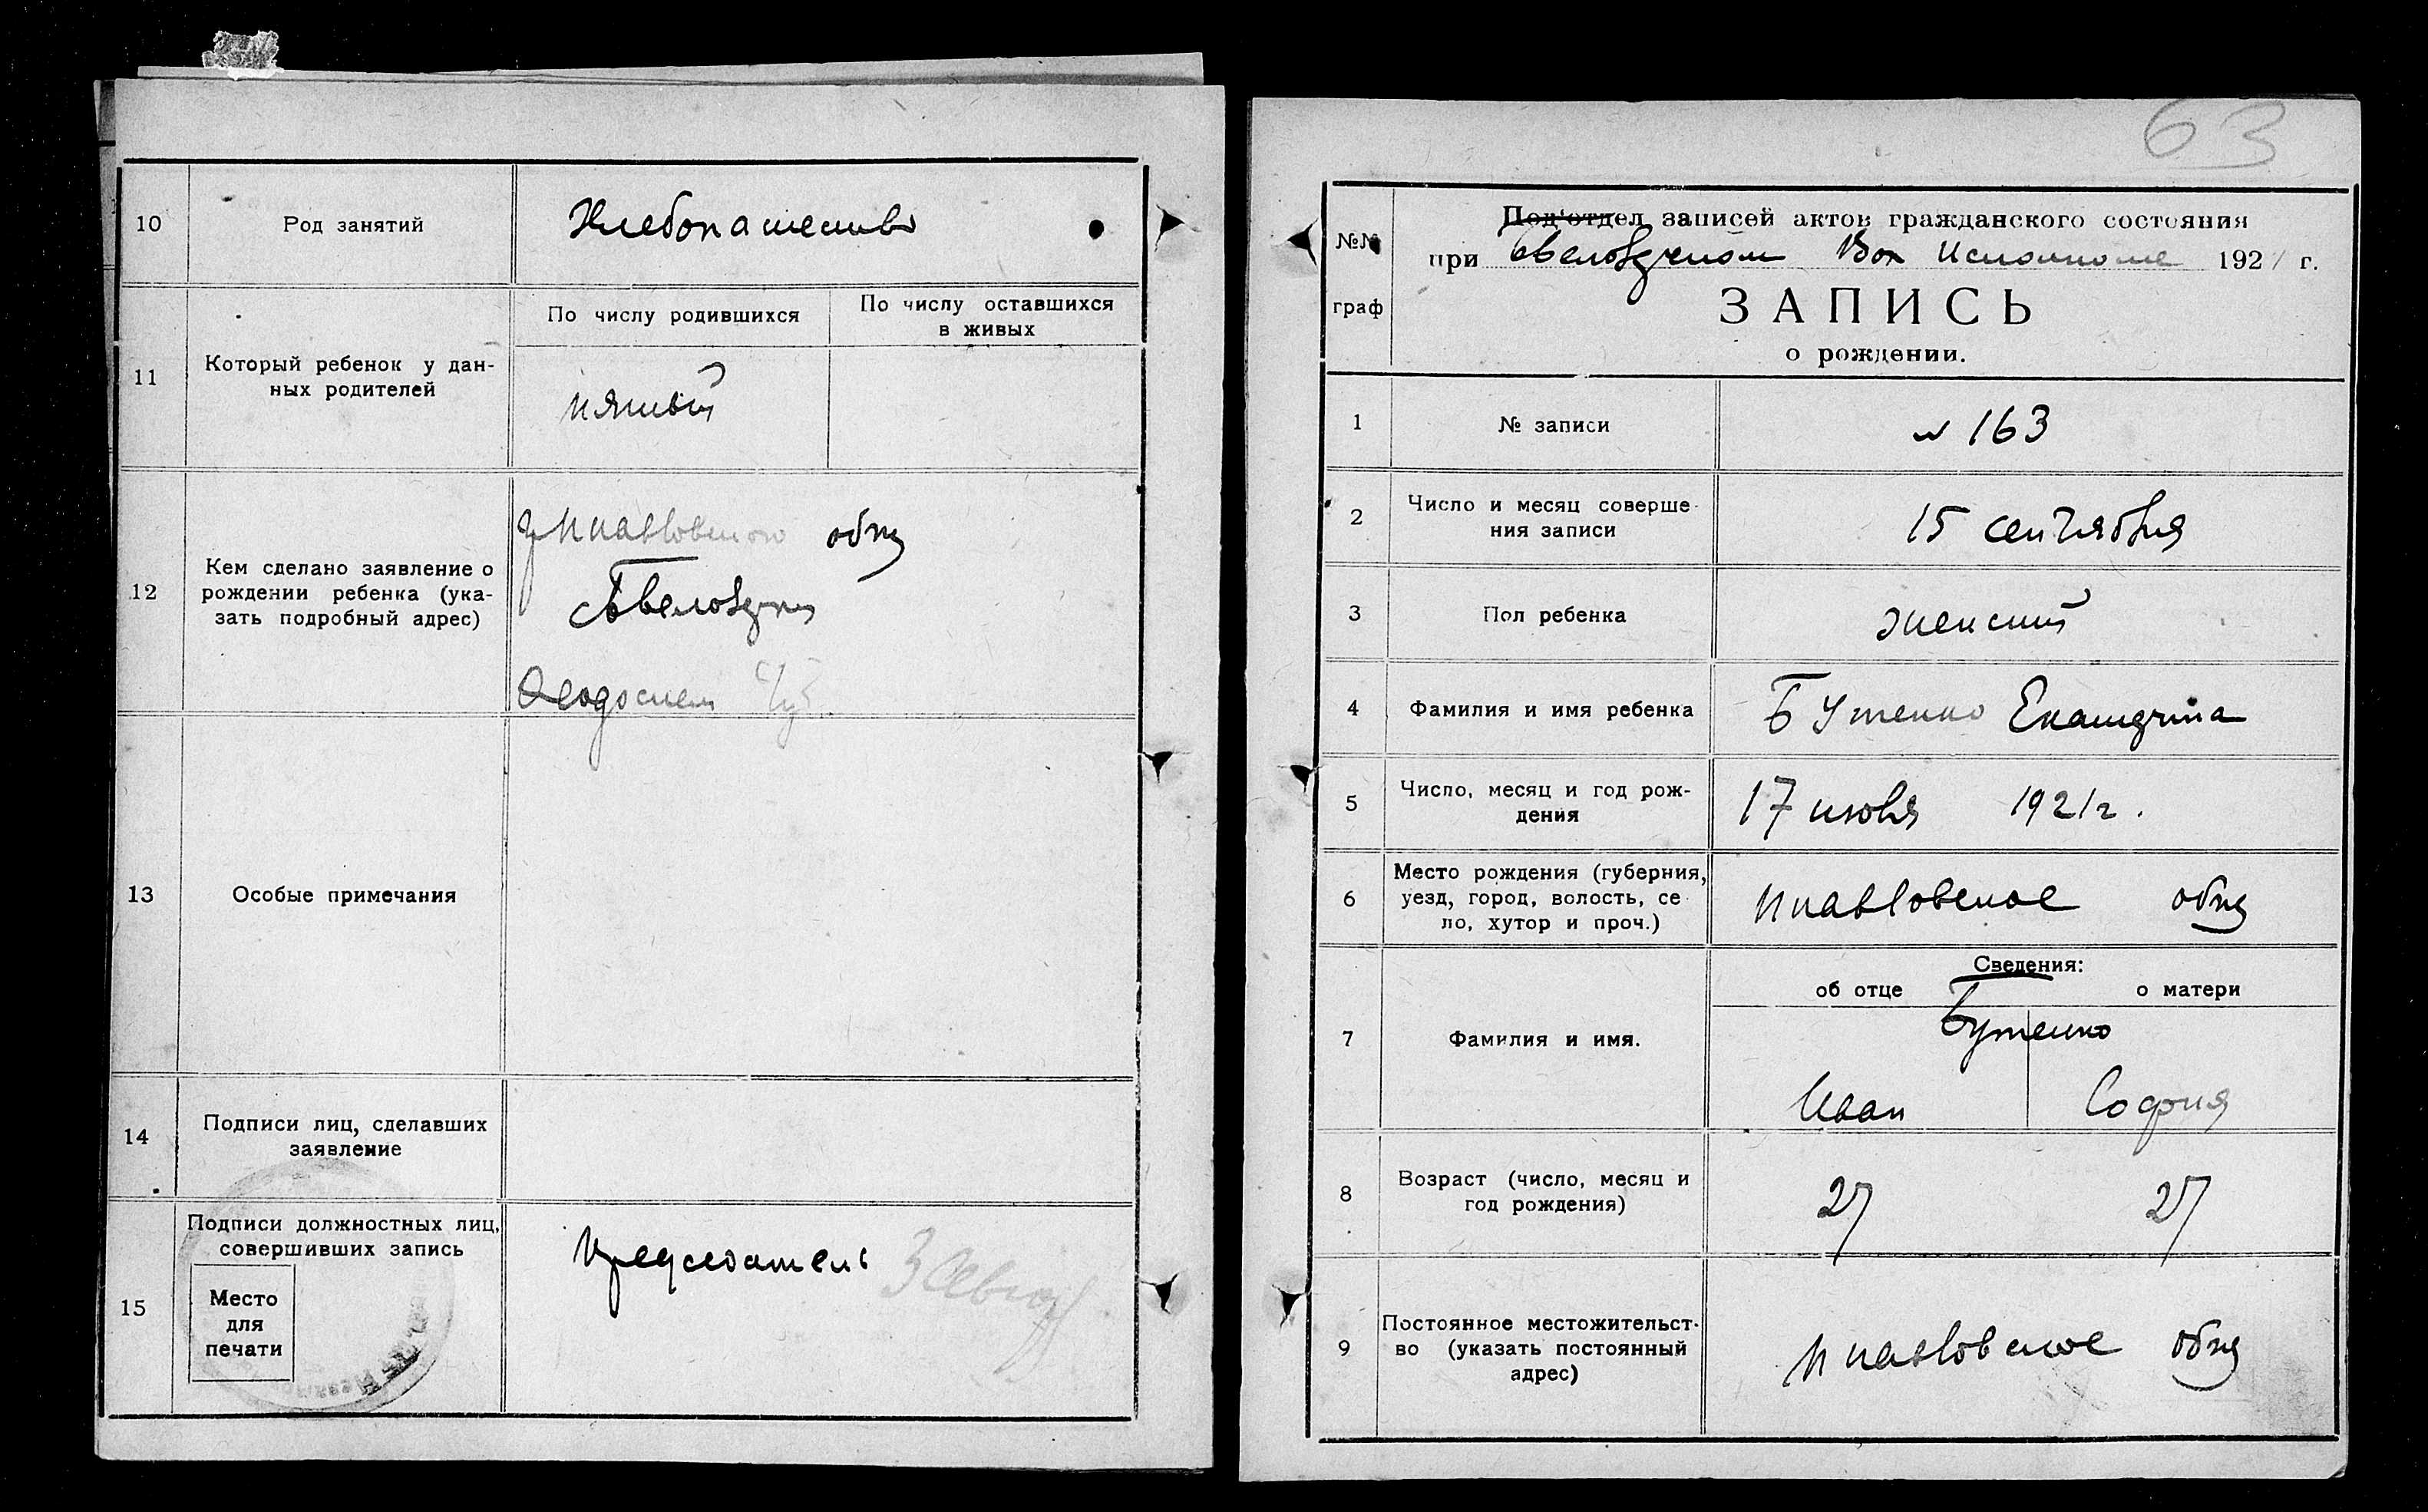 10
Род занятий
Хлебопашество
11
Который ребенок у дан-
ных родителей
По числу родившихся
По числу оставшихся
в живых
пятый
12
Кем сделано заявление о
рождении ребенка (ука-
зать подробный адрес)
общ
Феодосием
13
Особые примечания
14
Подписи лиц, сделавших
заявление
15
Подписи должностных лиц,
совершивших запись
Место
для
печати
Председатель
63
№№
граф
Под'отдел записей актов гражданского состояния
при Вол Исполкоме 1921 г.
ЗАПИСЬ
о рождении.
1
№ записи
№ 163
2
Число и месяц соверше-
ния записи
15 сентября
3
Пол ребенка
женский
4
Фамилия и имя ребенка
Бутенко Екатерина
5
Число, месяц и год рож-
дения
17 1921 г.
6
Место рождения (губерния,
уезд, город, волость, се-
ло, хутор и проч.)
общ
7
Фамилия и имя.
Сведения:
об отце
о матери
Бутенко
Иван
София
8
Возраст (число, месяц и
год рождения)
27
27
9
Постоянное местожительст-
во (указать постоянный
адрес)
общ